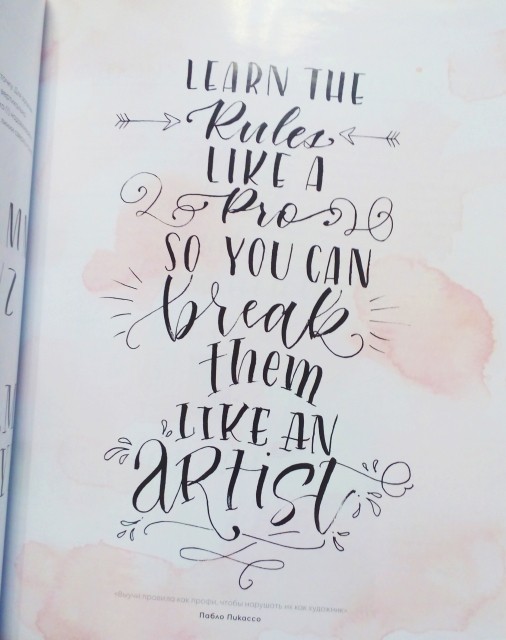 LEARN THE
Rules
LIKE A
Pro
SO YOU CAN
break
them
LIKE AN
ARTIST
«Выучи правила как профи, чтобы нарушать их как художник»
Пабло Пикассо